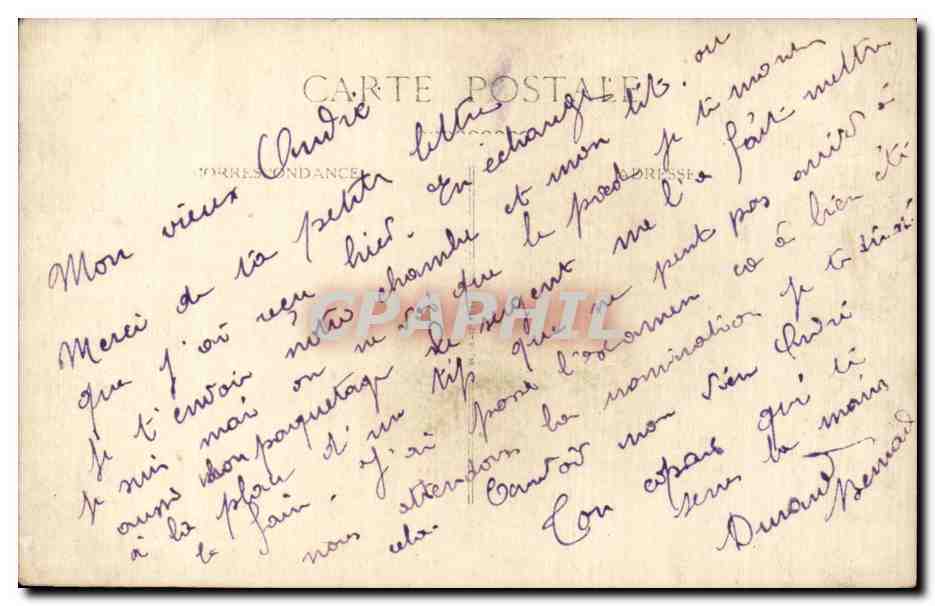 CARTE POSTALE
CORRESPONDANCE
ADRESSE
Mon vieux André
Merci de ta petite lettre
que j'ai reçu hier. En échange
je t'envoie notre chambre et mon lit. ou
je suis mais on ne voit que le pied je te montre
aussi mon paquetage le sergent me l'a fait mettre
à la place d'un type qui ne peut pas arrivé à
le faire. J'ai passé l'examen ca à bien été
nous attendons la nomination je te dirai
cela. Bonsoir mon vieu André
Ton copain qui te
serre la main
Durand Bernard
CPAPHIL